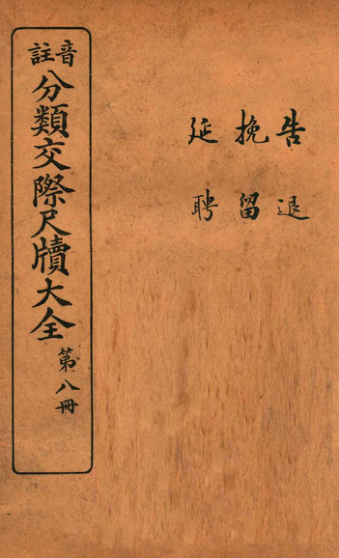 音註
分類交際尺牘大全
第八冊
告退
挽留
延聘